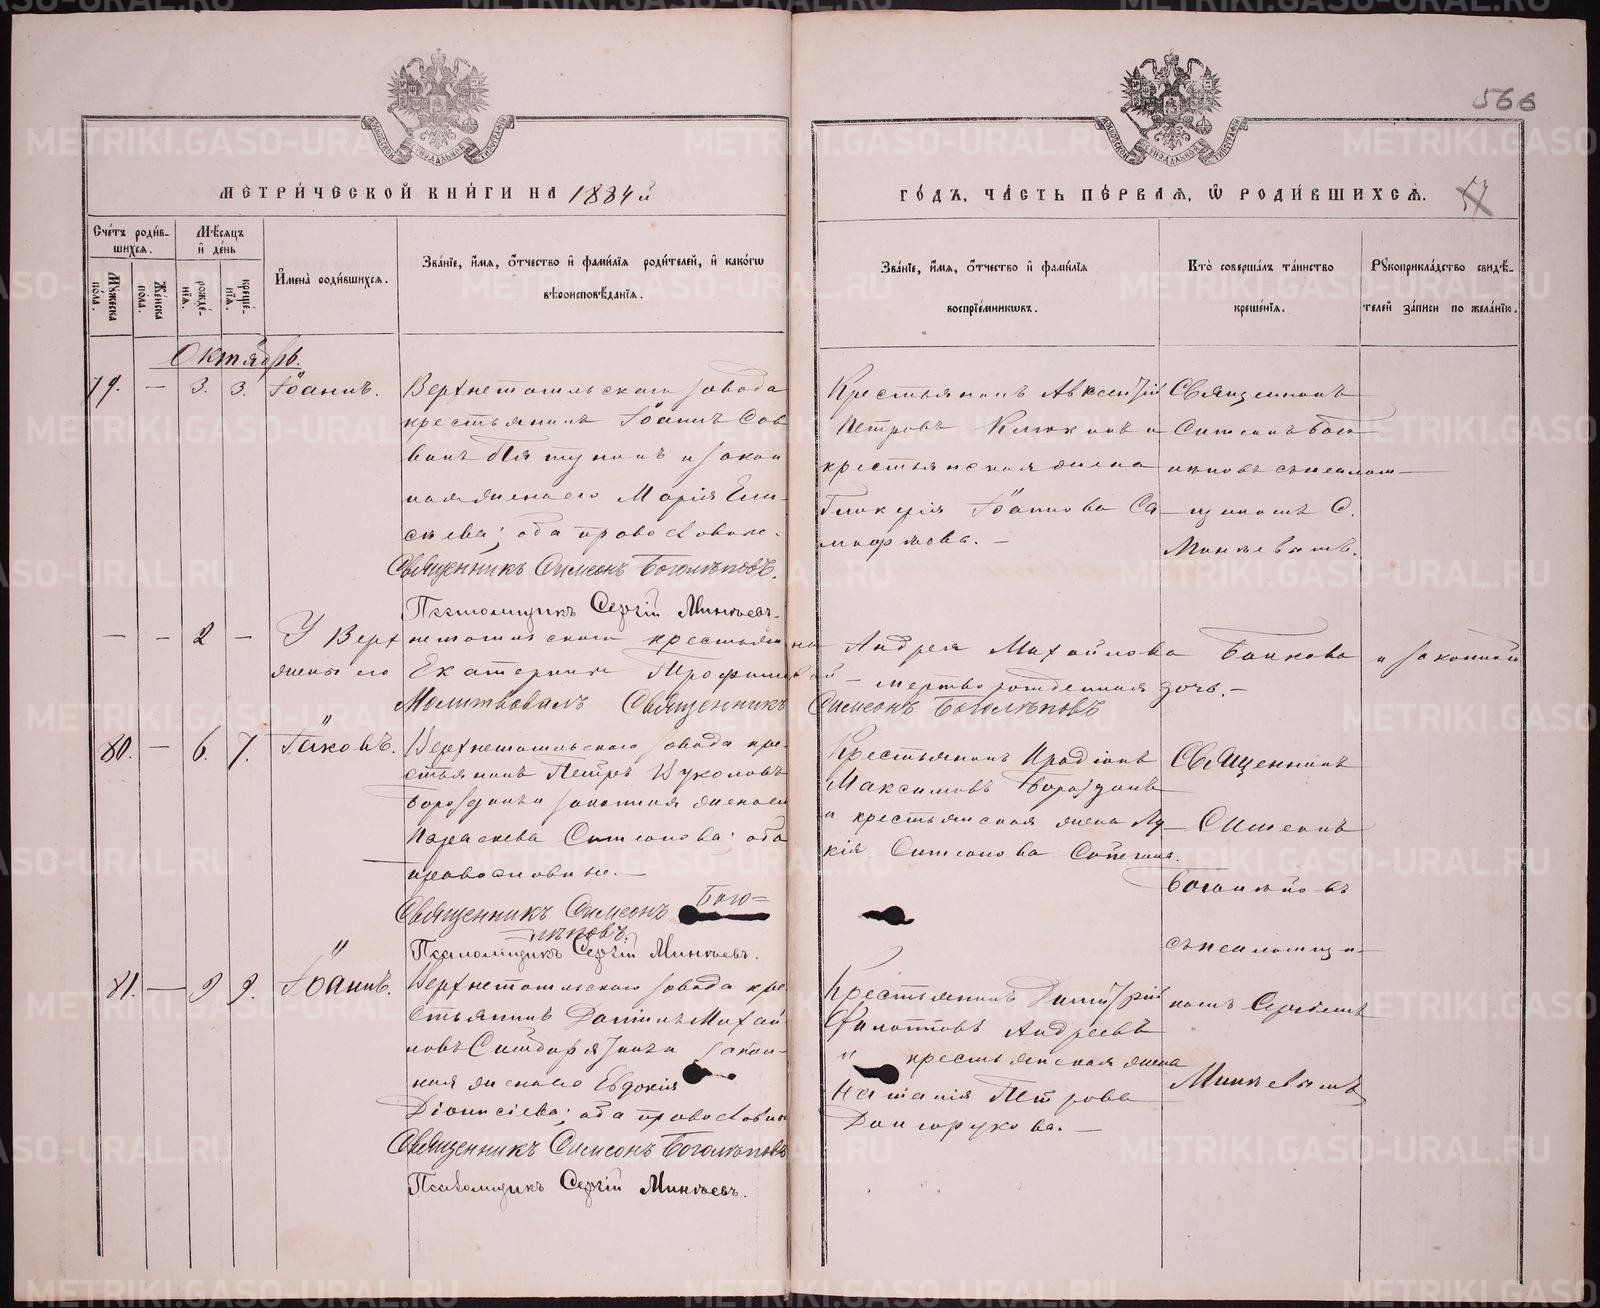 566
МЕТРИ́ЧЕСКОЙ КНИ́ГИ НА 1884й
ГО́ДЪ, ЧА́СТЬ ПЕ́РВАѦ, Ѽ РОДИ́ВШИХСѦ.
57
Сче́тъ роди́в-
шихсѧ.
Мѣ́сѧцъ
и҆ де́нь
Мꙋ́жеска по́ла.
Же́нска по́ла.
рожде́-
нїѧ.
креще́-
нїѧ.
И҆мена̀ роди́вшихсѧ.
Зва́нїе, и҆́мѧ, ѻ҆́тчество и҆ фами́лїѧ роди́телей, и҆ како́гѡ
вѣроисповѣ́данїѧ.
Зва́нїе, и҆́мѧ, ѻ҆́тчество и҆ фами́лїѧ
воспрїе́мникѡвъ.
Кто̀ соверша́лъ та́инство
креще́нїѧ.
Рꙋкоприкла́дство свидѣ́-
телей за́писи по жела́нїю.
Октябрь.
79. — 3. 3. Іоаннъ.
Верхнетагильскаго завода
крестьянинъ Іоаннъ Сав
винъ Пятунинъ и закон
ная жена его Марія Ели-
сѣева; оба православн.
Священникъ Симеонъ Боголѣповъ.
Псаломщикъ Сергій Минѣевъ.
Крестьянинъ Авксентій
Петровъ Клюкинъ и
крестьянская жена
Гликерія Іоаннова Са
марова. —
Священникъ
Симеонъ Бого
лѣповъ съ псалом—
щикомъ С.
Минѣевымъ.
— — 2 — У Верхнетагильскаго крестьянина Андрея Михайлова Банкова и законной
жены его Екатерины Трофимовой — мертворожденная дочь. —
Молитвовалъ Священникъ Симеонъ Боголѣповъ
80. — 6. 7. Іаковъ.
Верхнетагильскаго завода кре-
стьянинъ Петръ Вуколовъ
Бороздинъ и законная жена его
Параскева Симеонова; оба
православные. —
Священникъ Симеонъ Бого=
лѣповъ.
Псаломщикъ Сергій Минѣевъ.
Крестьянинъ Иродіонъ
Максимовъ Бороздинъ
и крестьянская жена Лу—
кія Симеонова
Священникъ
Симеонъ
Боголѣповъ
съ псаломщи—
комъ Сергіемъ
Минѣевымъ
81. — 9 9. Іоаннъ.
Верхнетагильскаго завода кре
стьянинъ Даніилъ Михай
ловъ и закон-
ная жена его Евдокія
Діонисіева; оба православн
Священникъ Симеонъ Боголѣповъ
Псаломщикъ Сергій Минѣевъ.
Крестьянинъ Димитрій
Филипповъ Андреевъ
и крестьянская жена
Наталія Петрова
Долгорукова. —